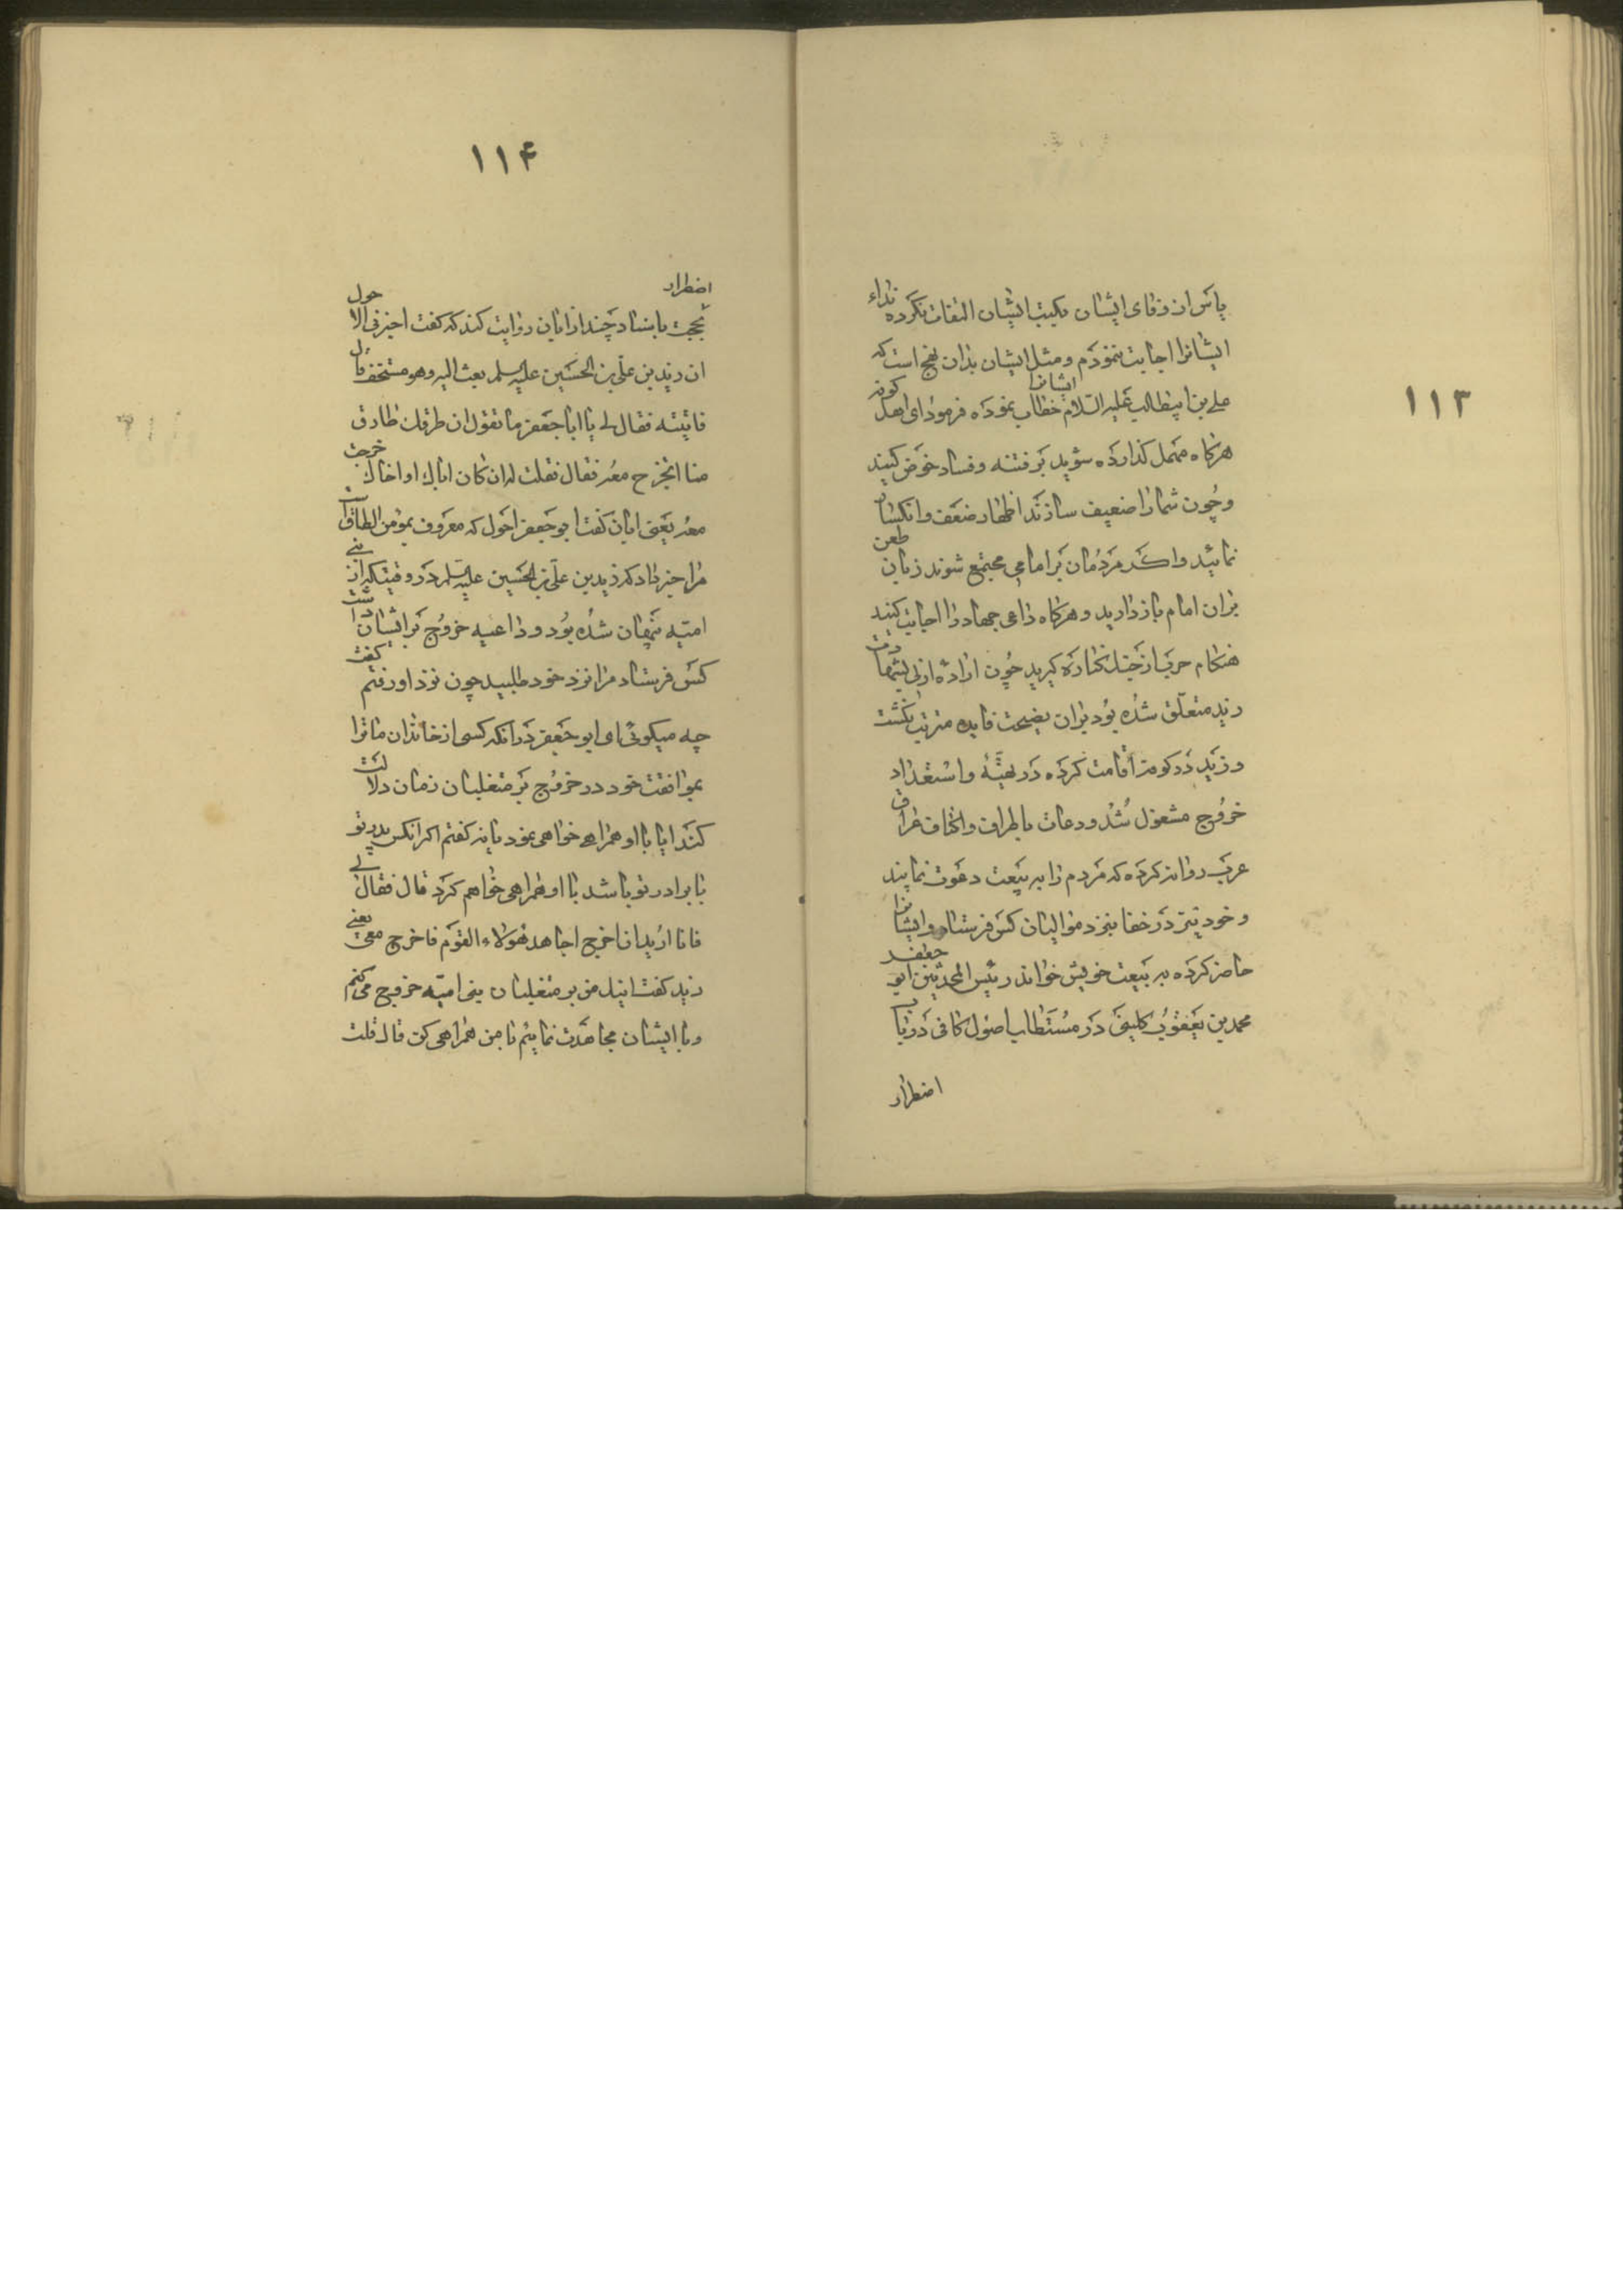 ۱۱۳
یاس از وفای ایشان بکتب ایشان التفات نکرده نداء
ایشانرا اجابت ننمودم و مثل ایشان بدان نهج است که
علی بن ابیطالب علیه السلام ایشانرا خطاب نموده فرمود ای اهل کوفه
هرکاه مهمل کذارده شوید بر فتنه و فساد خوض کنید
و چون شما را ضعیف سازند اظهار ضعف و انکسار
نمائید و اکر مردمان بر امامی مجتمع شوند زبان طعن
بران امام باز دارید و هرکاه داعی جهاد را اجابت کنید
هنکام حرب از جنک کناره کیرید چون اراده ازلی بشهادت
زید متعلق شده بود بران نصیحت فایده مترتب نکشت
و زید در کوفه اقامت کرده در تهیّهٔ و استعداد
خروج مشغول شد و دعات باطراف و اکناف عراق
عرب روانه کرده که مردم را به بیعت دعوت نمایند
و خود نیز در خفا بنزد موالیان کس فرستاد و ایشانرا
حاضر کرده به بیعت خویش خواند رئیس المحدثین ابو جعفر
محمد بن یعقوب کلینی در مستطاب اصول کافی در باب
اضطرار
۱۱۴
اضطرار
بحجت باسناد چند از ابان روایت کند که کفت اخبرنی الاحول
ان زید بن علی بن الحسین علیه السلم بعث الیه وهو مستخف قال
فاتیته فقال لی یا ابا جعفر ما تقول ان طرقک طارق
منا اتخرج معه فقال فقلت له ان کان اباک او اخاک خرجت
معه یعنی ابان کفت ابو جعفر احول که معروف بمومن الطاق است
مرا خبر داد که زید بن علی بن الحسین علیه السلم در وقتیکه از بنی
امیّه پنهان شده بود و داعیه خروج بر ایشان داشت
کس فرستاد مرا نزد خود طلبید چون نزد او رفتم کفت
چه میکوئی ای ابو جعفر در انکه کسی از خاندان ما ترا
بموافقت خود در خروج بر متغلبان زمان دلالت
کند ایا با او همراهی خواهی نمود یا نه کفتم اکر انکس پدر تو
یا برادر تو باشد با او همراهی خواهم کرد قال فقال لی
فانا ارید ان اخرج اجاهد هؤلاء القوم فاخرج معی یعنی
زید کفت اینک من بر متغلبان بنی امیّه خروج می کنم
و با ایشان مجاهدت نمایم تا من همراهی کن قال قلت